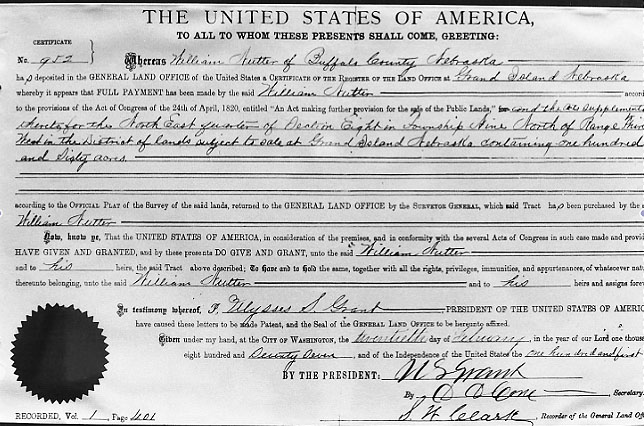 THE UNITED STATES OF AMERICA,
TO ALL TO WHOM THESE PRESENTS SHALL COME, GREETING:
CERTIFICATE
No. 952 } Whereas William Nutter of Buffalo County Nebraska
ha s deposited in the GENERAL LAND OFFICE of the United States a CERTIFICATE OF THE REGISTER OF THE LAND OFFICE AT Grand Island Nebraska
whereby it appears that FULL PAYMENT has been made by the said William Nutter accor
to the provisions of the Act of Congress of the 24th of April, 1820, entitled "An Act making further provision for the sale of the Public Lands," and the supplement
thereto for the North East quarter of Section Eight in Township Nine North of Range
West in the District of lands subject to sale at Grand Island Nebraska containing one hundred
and Sixty acres
according to the OFFICIAL PLAT of the Survey of the said lands, returned to the GENERAL LAND OFFICE by the SURVEYOR GENERAL, which said Tract ha s been purchased by the s
William Nutter
Now, know ye, That the UNITED STATES OF AMERICA, in consideration of the premises, and in conformity with the several Acts of Congress in such case made and provi
HAVE GIVEN AND GRANTED, and by these presents DO GIVE AND GRANT, unto the said William Nutter
and to his heirs, the said Tract above described; To have and to hold the same, together with all the rights, privileges, immunities, and appurtenances, of whatsoever nat
thereunto belonging, unto the said William Nutter and to his heirs and assigns forev
In testimony whereof, I, Ulysses S. Grant PRESIDENT OF THE UNITED STATES OF AMERIC
have caused these letters to be made Patent, and the Seal of the GENERAL LAND OFFICE to be hereunto affixed.
Given under my hand, at the CITY OF WASHINGTON, the twentieth day of February, in the year of our Lord one thous
eight hundred and Seventy Seven, and of the Independence of the United States the one hundred and first
BY THE PRESIDENT: U S Grant
By D D Cone, Secretary.
S. W. Clark, Recorder of the General Land Offi
RECORDED, Vol. 1, Page 401